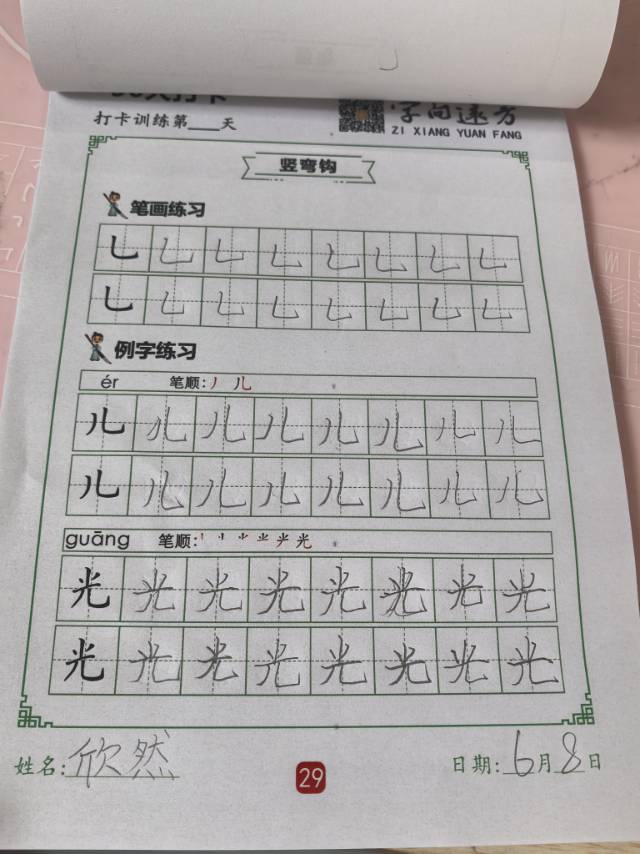 打卡训练第___天
ZI XIANG YUAN FANG
竖弯钩
笔画练习
乚 乚 乚 乚 乚 乚 乚 乚
乚 乚 乚 乚 乚 乚 乚 乚
例字练习
ér 笔顺:丿 儿
儿 儿 儿 儿 儿 儿 儿 儿
儿 儿 儿 儿 儿 儿 儿 儿
guāng 笔顺:
光 光 光 光 光 光 光 光
光 光 光 光 光 光 光 光
姓名:欣然
29
日期:6月8日